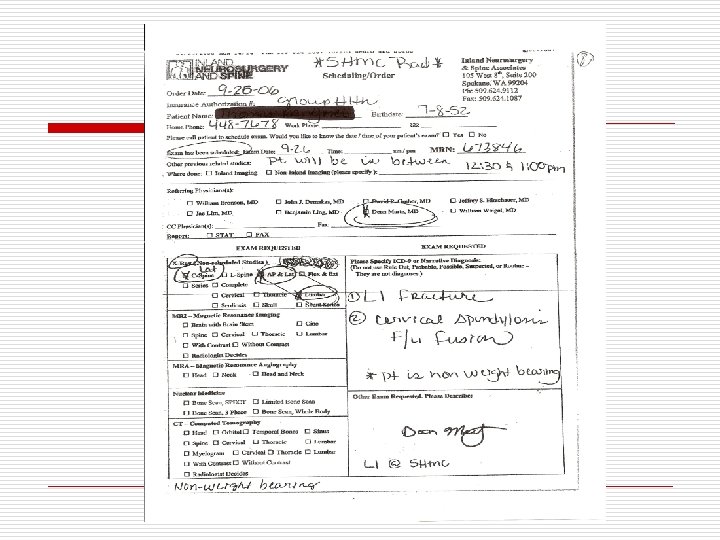 *SHMC Rad*
INLAND NEUROSURGERY AND SPINE
Scheduling/Order
Inland Neurosurgery
& Spine Associates
105 West 8th, Suite 200
Spokane, WA 99204
Ph: 509.624.9112
Fax: 509.624.1087
Order Date: 9-26-06
Insurance Authorization #: Group Hlth
Patient Name: Birthdate: 7-8-52
Home Phone: 448-7678 Work Phone:
Please call patient to schedule exam. Would you like to know the date / time of your patient's exam? ☐ Yes ☐ No
Exam has been scheduled: Exam Date: 9-26 Time: am/pm MRN: 673846
Other previous related studies: Pt will be in between 12:30 & 1:00pm
Where done: ☐ Inland Imaging ☐ Non Inland Imaging (please specify):
Referring Physician(s):
☐ William Bronson, MD ☐ John J. Demakas, MD David R. Gruber, MD ☐ Jeffrey S. Hirschauer, MD
☐ Jae Lim, MD ☐ Benjamin Ling, MD Dean Martz, MD ☐ William Wagel, MD
CC Physician(s): Fax:
Report: ☐ STAT ☐ FAX
EXAM REQUESTED EXAM REQUESTED
X-Ray (Non-scheduled Studies)
Lat
C-Spine ☐ L-Spine AP & Lat ☐ Flex & Ext
☐ Series ☐ Complete
☐ Cervical ☐ Thoracic Lumbar
☐ Scoliosis ☐ Skull ☐ Shunt Series
MRI – Magnetic Resonance Imaging
☐ Brain with Brain Stem ☐ Cine
☐ Spine ☐ Cervical ☐ Thoracic ☐ Lumbar
☐ With Contrast ☐ Without Contrast
☐ Radiologist Decides
MRA – Magnetic Resonance Angiography
☐ Head ☐ Neck ☐ Head and Neck
Nuclear Medicine
☐ Bone Scan, SPECT ☐ Limited Bone Scan
☐ Bone Scan, 3 Phase ☐ Bone Scan, Whole Body
CT – Computed Tomography
☐ Head ☐ Orbital ☐ Temporal Bones ☐ Sinus
☐ Spine ☐ Cervical ☐ Thoracic ☐ Lumbar
☐ Myelogram ☐ Cervical ☐ Thoracic ☐ Lumbar
☐ With Contrast ☐ Without Contrast
☐ Radiologist Decides
Please Specify ICD-9 or Narrative Diagnosis:
(Do not use Rule Out, Probable, Possible, Suspected, or Routine –
They are not diagnoses.)
① L1 fracture
② Cervical Spondylosis
F/u fusion
* pt is non weight bearing
Other Exam Requested, Please Describe:
L1 @ SHMC
Non-weight bearing